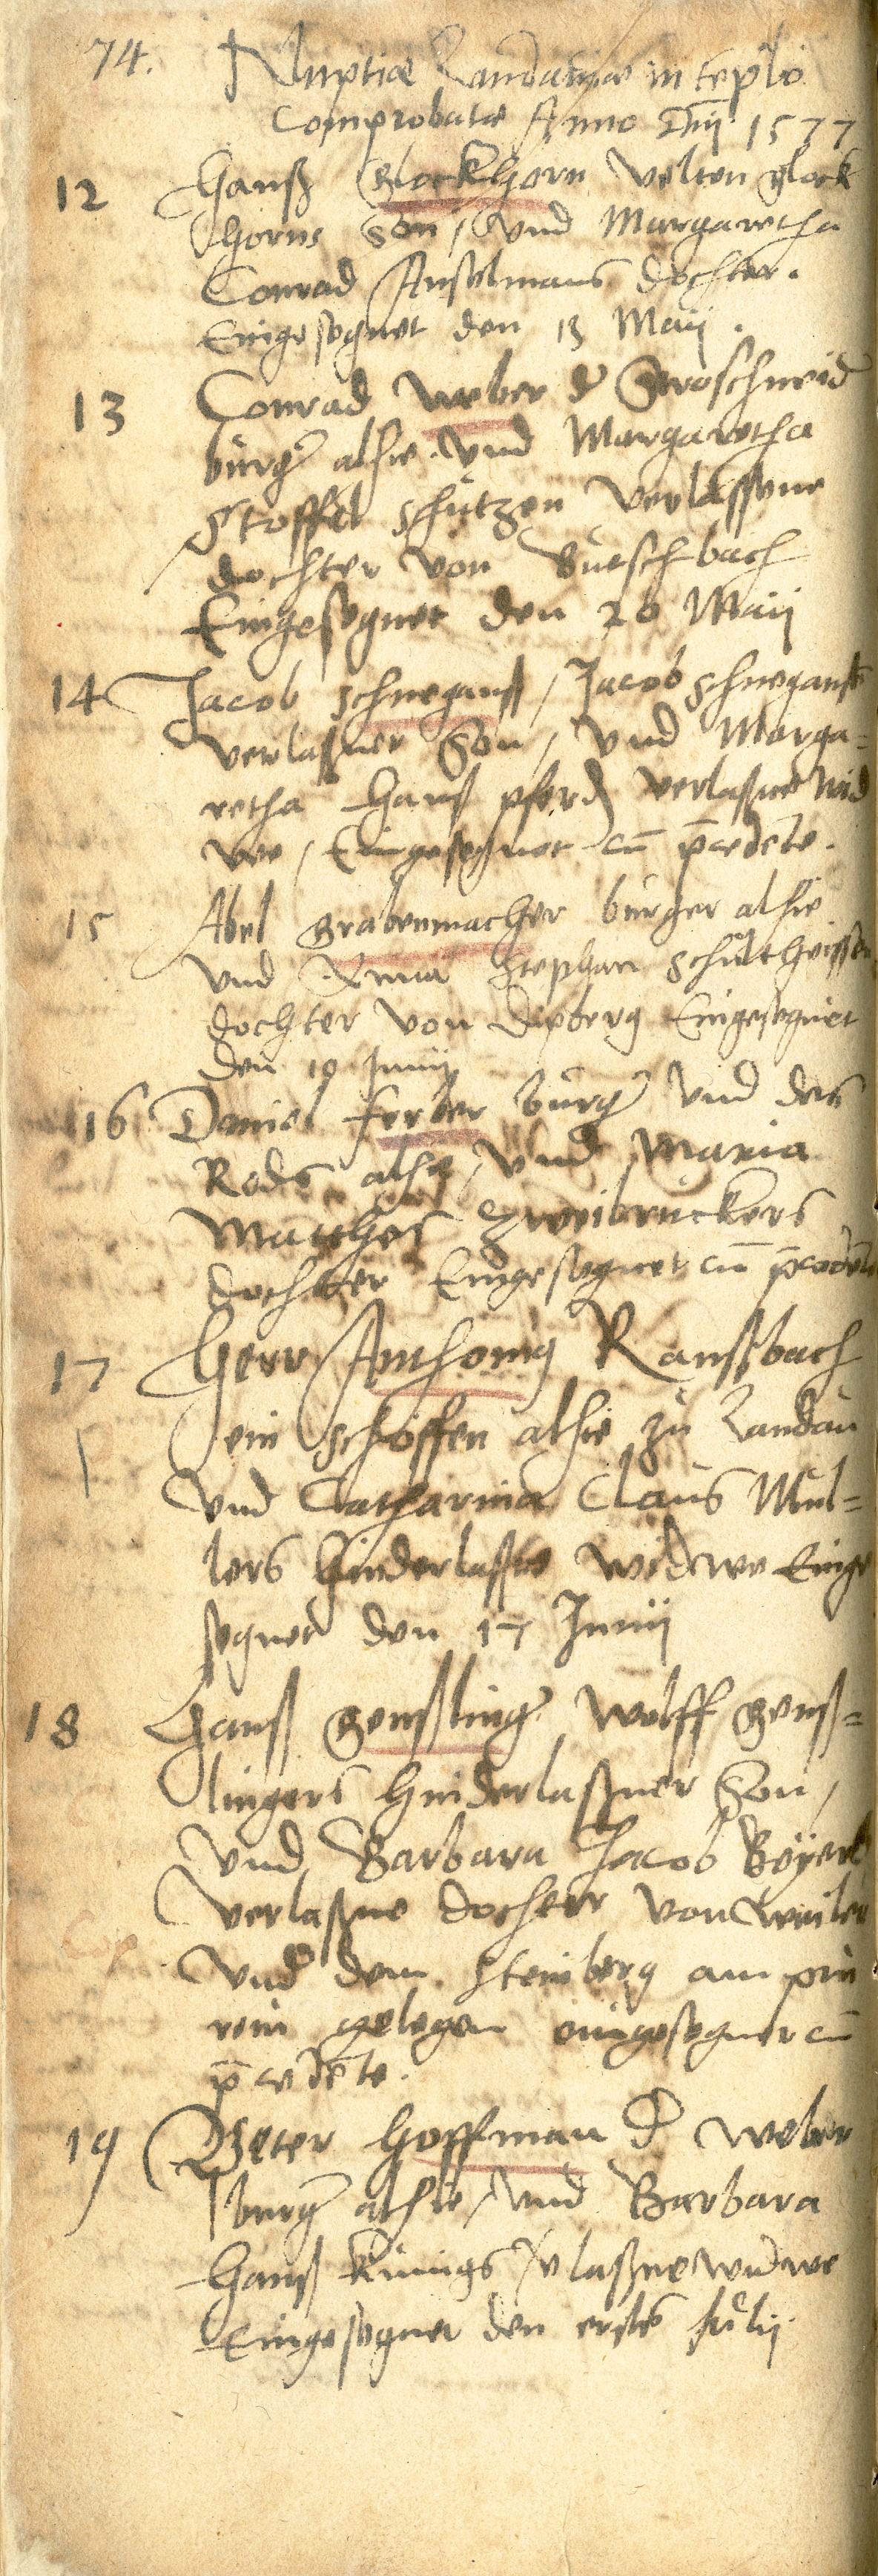 74. Nuptiae Landaviae in teplo
Comprobatae Anno Dni 1577
12 Hanß Glockhorn Velten glock
horns Son, Und Margaretha
Conrad Anselmans dochter.
Eingesegnet den 13 Maij.
13 Conrad Weber d Stroschneid
burg alhie. Und Margaretha
Stoffel schützen Verlassene
dochter von
Eingesegnet den 20 Maij
14 Jacob schneganß, Jacob schneganß
verlaßner Son, Und Marga-
retha Hanß pferd verlaßne Wid
we, Eingesegnet cū p̄cedēte.
15 Abel grabenmacher burger alhie
Und Anna Stephan schultheissen
dochter von Eingesegnet
den 10 Junij
16 Daniel ferber burg Und des
Rods alhie, Und Maria
Matthes Zweibruckers
dochter Eingesegnet cū p̄cedēte
17 Herr Anthonij Ranßbach
ein schöffen alhie zu Landau
Und Catharina Claus Mul-
lers hinderlaßne widwe Einge
segnet den 17 Junij
18 Hanß genßling Wolff genß-
lingers hinderlaßner Son,
Und Barbara Jacob Beyers
Verlaßne dochter von Weiler
Und dem Steinberg am
rein gelegen eingesegnet cū
p̄cedēte.
19 Peter Hoffman d Weber
burg alhie, Und Barbara
Hanß Künigs vlaßne widwe
Eingesegnet den ersten Julij.